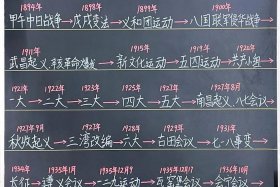 1894年 1898年 1899年 1900年
甲午中日战争→戊戌变法→义和团运动→八国联军侵华战争→
1911年 1915年 1919年 1920年
武昌起义 →新文化运动→五四运动→共产小组
1921年 1922年 1923年 1925年 1927年 1927年
一大→二大→三大→四大→五大→南昌起义 八七会议
1927年9月 1927年 1928年 1929年 1931年
秋收起义→三湾改编→六大→古田会议→九一八事变→
1934年 1935年1月 1935年12月9 1935年12月 1936年10月
长征→遵义会议→一二九运动→瓦窑堡会议→会宁会师